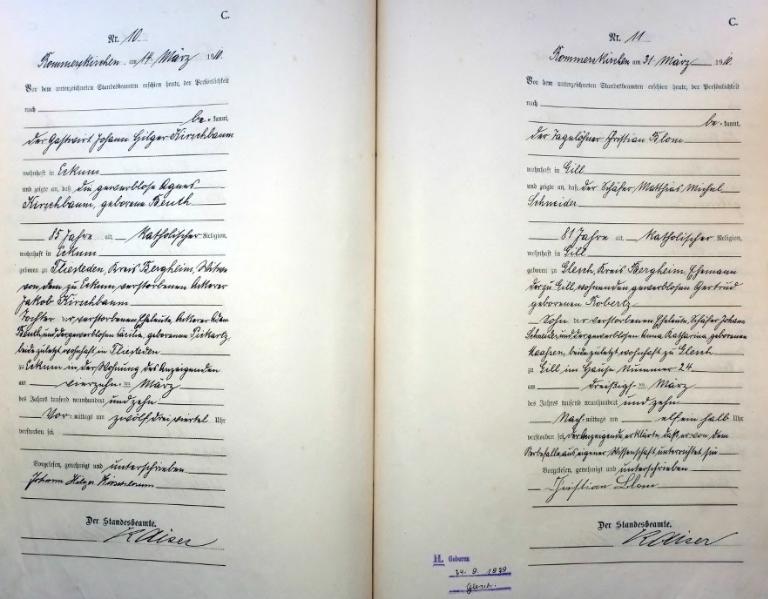 C.
Nr. 10
Rommerskirchen am 14 März 1910.
Vor dem unterzeichneten Standesbeamten erschien heute, der Persönlichkeit
nach
be=kannt,
der Gastwirt Johann Hilger Kirschbaum
wohnhaft in Eckum
und zeigte an, daß die gewerblose Agnes
Kirschbaum, geborene Benth
85 Jahre alt, Katholischer Religion,
wohnhaft in Eckum
geboren zu Fliesteden, Kreis Bergheim, Witwe
von dem zu Eckum verstorbenen Ackerer
Jakob Kirschbaum
Tochter der verstorbenen Eheleute, Ackerer
und der gewerblosen geborenen
beide zuletzt wohnhaft in Fliesteden
zu Eckum in der Wohnung des Anzeigenden
am vierzehn ten März
des Jahres tausend neunhundert und zehn
Vor mittags um zwölf drei viertel Uhr
verstorben sei.
Vorgelesen, genehmigt und unterschrieben
Johann Hilger Kirschbaum
Der Standesbeamte.
Kaiser
C.
Nr. 11
Rommerskirchen am 31 März 1910.
Vor dem unterzeichneten Standesbeamten erschien heute, der Persönlichkeit
nach
be=kannt,
der Tagelöhner Christian Blom
wohnhaft in Gill
und zeigte an, daß der Schäfer Matthias Michel
Schneider
81 Jahre alt, Katholischer Religion,
wohnhaft in Gill
geboren zu Glesch, Kreis Bergheim, Ehemann
der zu Gill wohnenden gewerblosen Gertrud
geborenen Robertz
Sohn der verstorbenen Eheleute, Schäfer Johann
Schneider und der gewerblosen Anna Katharina geborenen
beide zuletzt wohnhaft zu Glesch
zu Gill im Hause Nummer 24
am dreißigs ten März
des Jahres tausend neunhundert und zehn
Nach mittags um elf ein halb Uhr
verstorben sei, der Anzeigende erklärte, daß er von dem
Sterbefalle aus eigener Wissenschaft unterrichtet sei
Vorgelesen, genehmigt und unterschrieben
Christian Blom
Der Standesbeamte.
Kaiser
H. Geboren
Glesch.